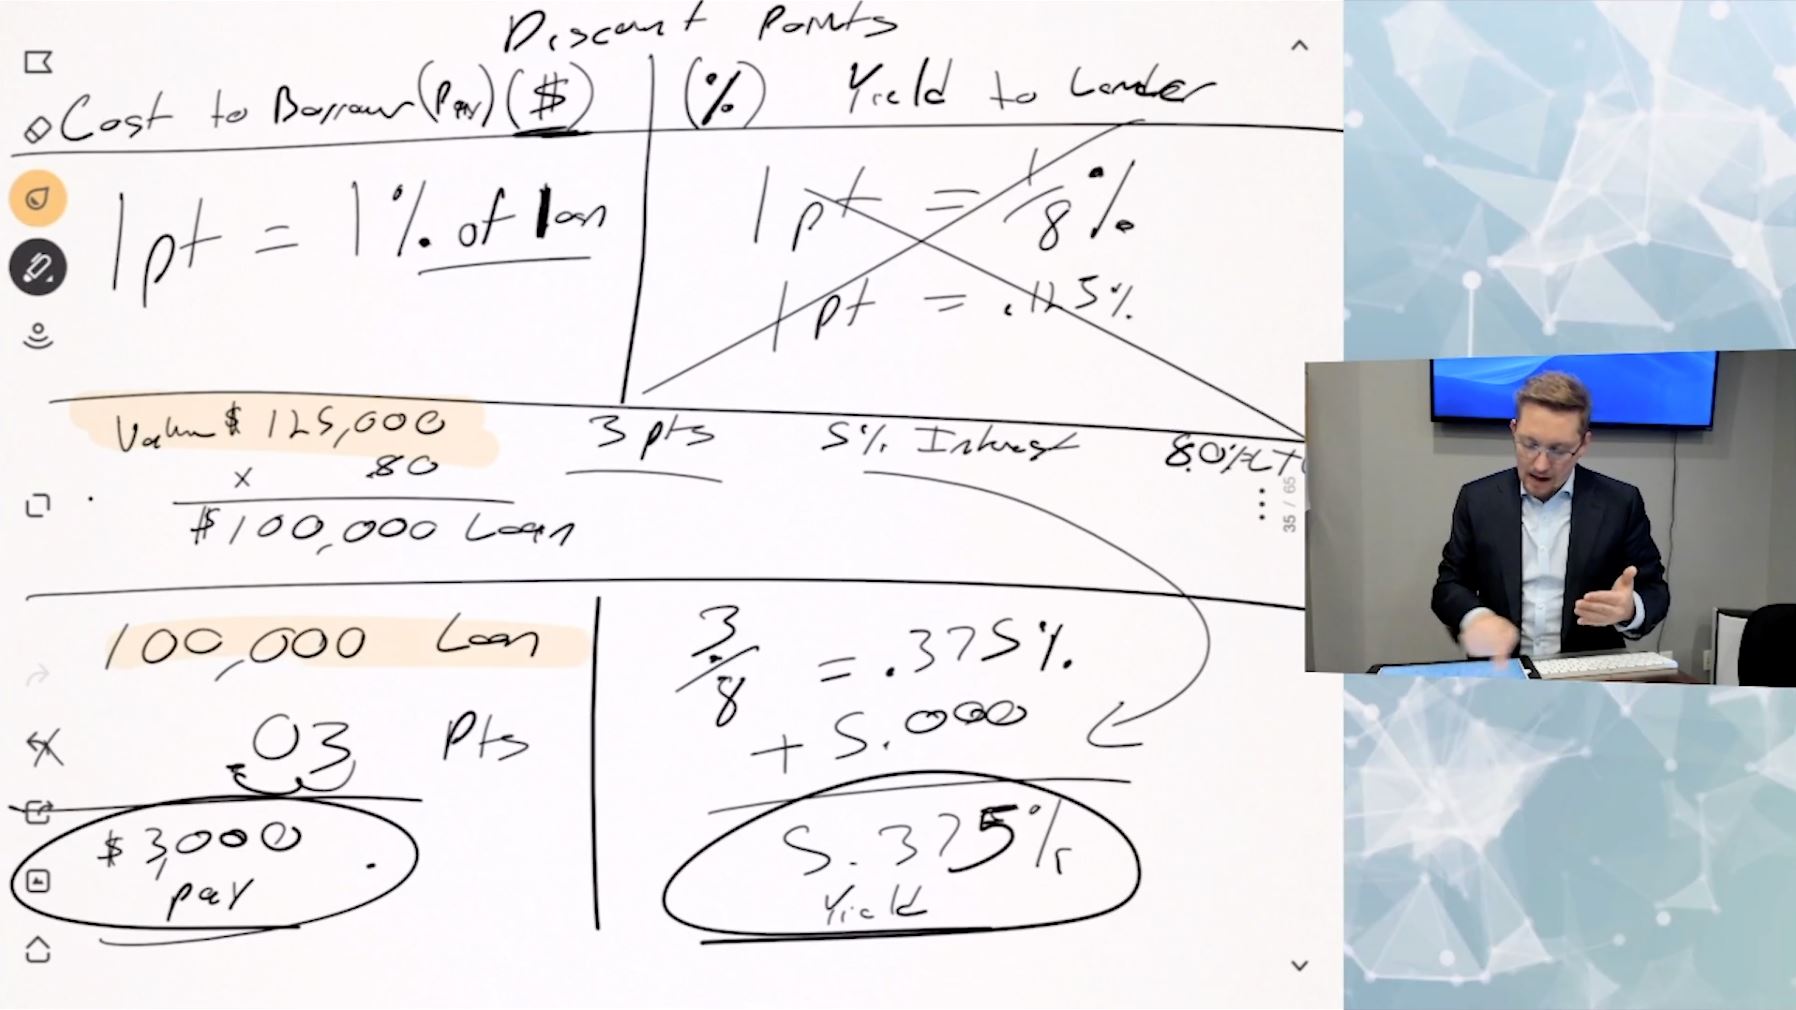 Discount Points
Cost to Borrower (Pay) ($)
(%) Yield to Lender
1 pt = 1% of loan
1 pt = 1/8%
1 pt = .125%
Value $ 125,000
x .80
$100,000 Loan
3 pts
5% Interest
80% LTV
35 / 65
100,000 Loan
.03 Pts
$3,000
pay
3/8 = .375%
+ 5.000
5.375%
Yield